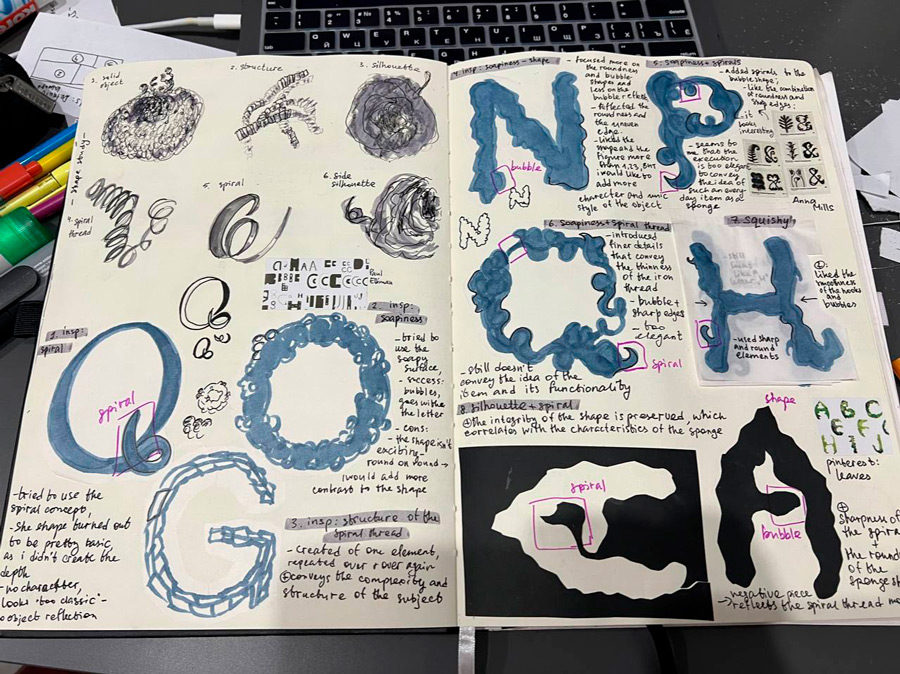 1. solid object
2. structure
3. silhouette
- shape study -
4. spiral thread
5. spiral
6. side silhouette
1. insp: spiral
spiral
- tried to use the
spiral concept,
as i didn't create the
depth
- no character,
looks "too classic" -
object reflection
2. insp: soapiness
- tried to
use the
soapy
surface,
- success:
bubbles,
goes with
the letter
- cons:
- the shape isn't
exciting -
round on round →
would add more
contrast to the shape
3. insp: structure of the
spiral thread
- created of one element,
repeated over & over again
⊕ conveys the complexity and
structure of the subject
4. insp: soapiness - shape
- focused more on
the roundness
and bubble
shapes and
less on the
bubble
- reflected the
roundness and
the uneven
edge.
- liked the
shape and the
figure more
than 1,2,3, but
would like to
add more
character and
style of the object
bubble
5. soapiness + spirals
- added spirals to the
bubble shape;
- like the combination
of roundness and
sharp edges:
it looks
interesting
- seems to
me that the
execution
is too elegant
to convey
the idea of
such an every
day item as a
sponge
Anna
Mills
6. Soapiness + spiral thread
- introduced
finer details
that convey
the thinness
of the iron
thread
- bubble +
sharp edges
- too
elegant
spiral
- still doesn't
convey the idea of the
item and its functionality
7. Squishy
⊕: liked the
smoothness
of the hooks
and
bubbles
- used sharp
and round
elements
8. silhouette + spiral
⊕ the integrity of the shape is preserved, which
correlates with the charecteristics of the sponge
spiral
shape
bubble
A B C
E F
H I J
pinterest:
leaves
⊕
sharpness of
the spiral
the roundness
of the
sponge
→ negative piece
reflects the spiral thread